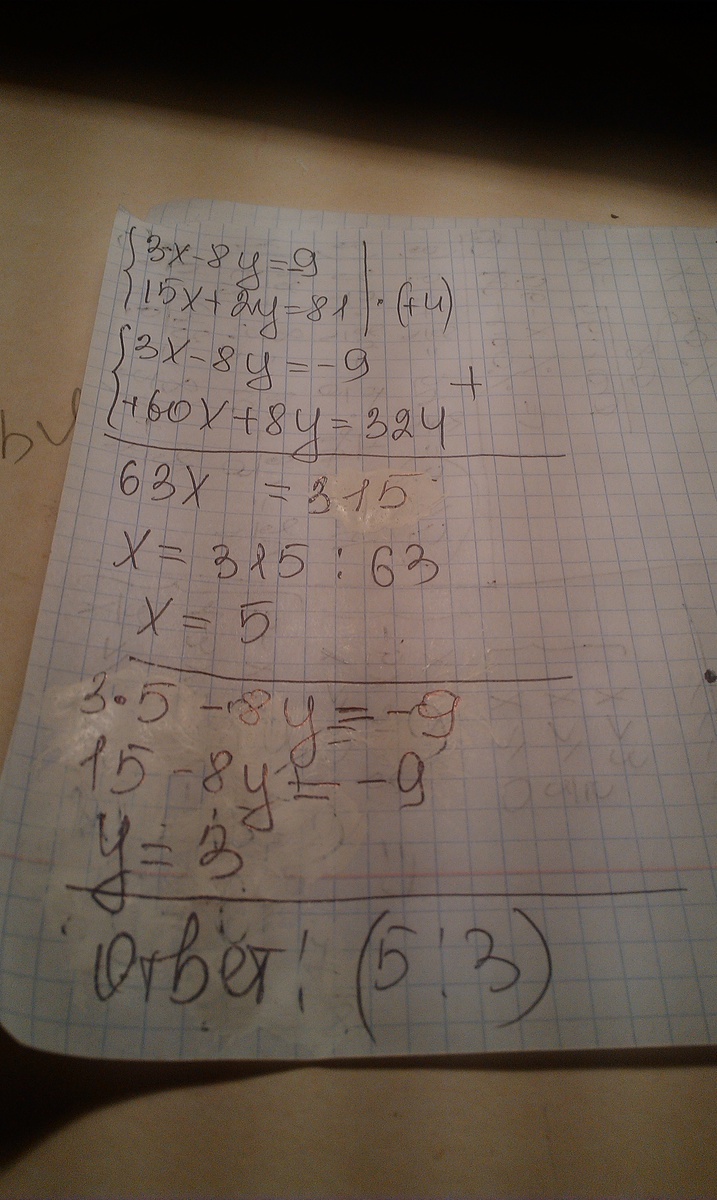 {3x-8y=-9 |
{15x+2y=81 | · (+4)
{3x-8y=-9
{+60x+8y=324 +
63x = 315
x= 315 : 63
x= 5
3·5 -8y=-9
15 -8y= -9
y= 3
Ответ: (5;3)